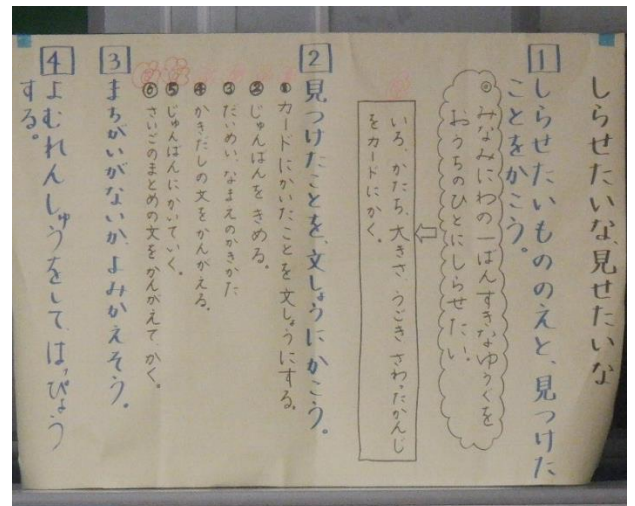 しらせたいな、見せたいな
1
しらせたいもののえと、見つけた
ことをかこう。
◎みなみにわの一ばんすきなゆうぐを
おうちのひとにしらせたい。
いろ、かたち、大きさ、うごき さわったかんじ
をカードにかく。
2
見つけたことを、文しょうにかこう。
①カードにかいたことを文しょうにする。
②じゅんばんをきめる。
③だいめい、なまえのかきかた
④かきだしの文をかんがえる。
⑤じゅんばんにかいていく。
⑥さいごのまとめの文をかんがえて、かく。
3
まちがいがないか、よみかえそう。
4
よむれんしゅうをして、はっぴょう
する。